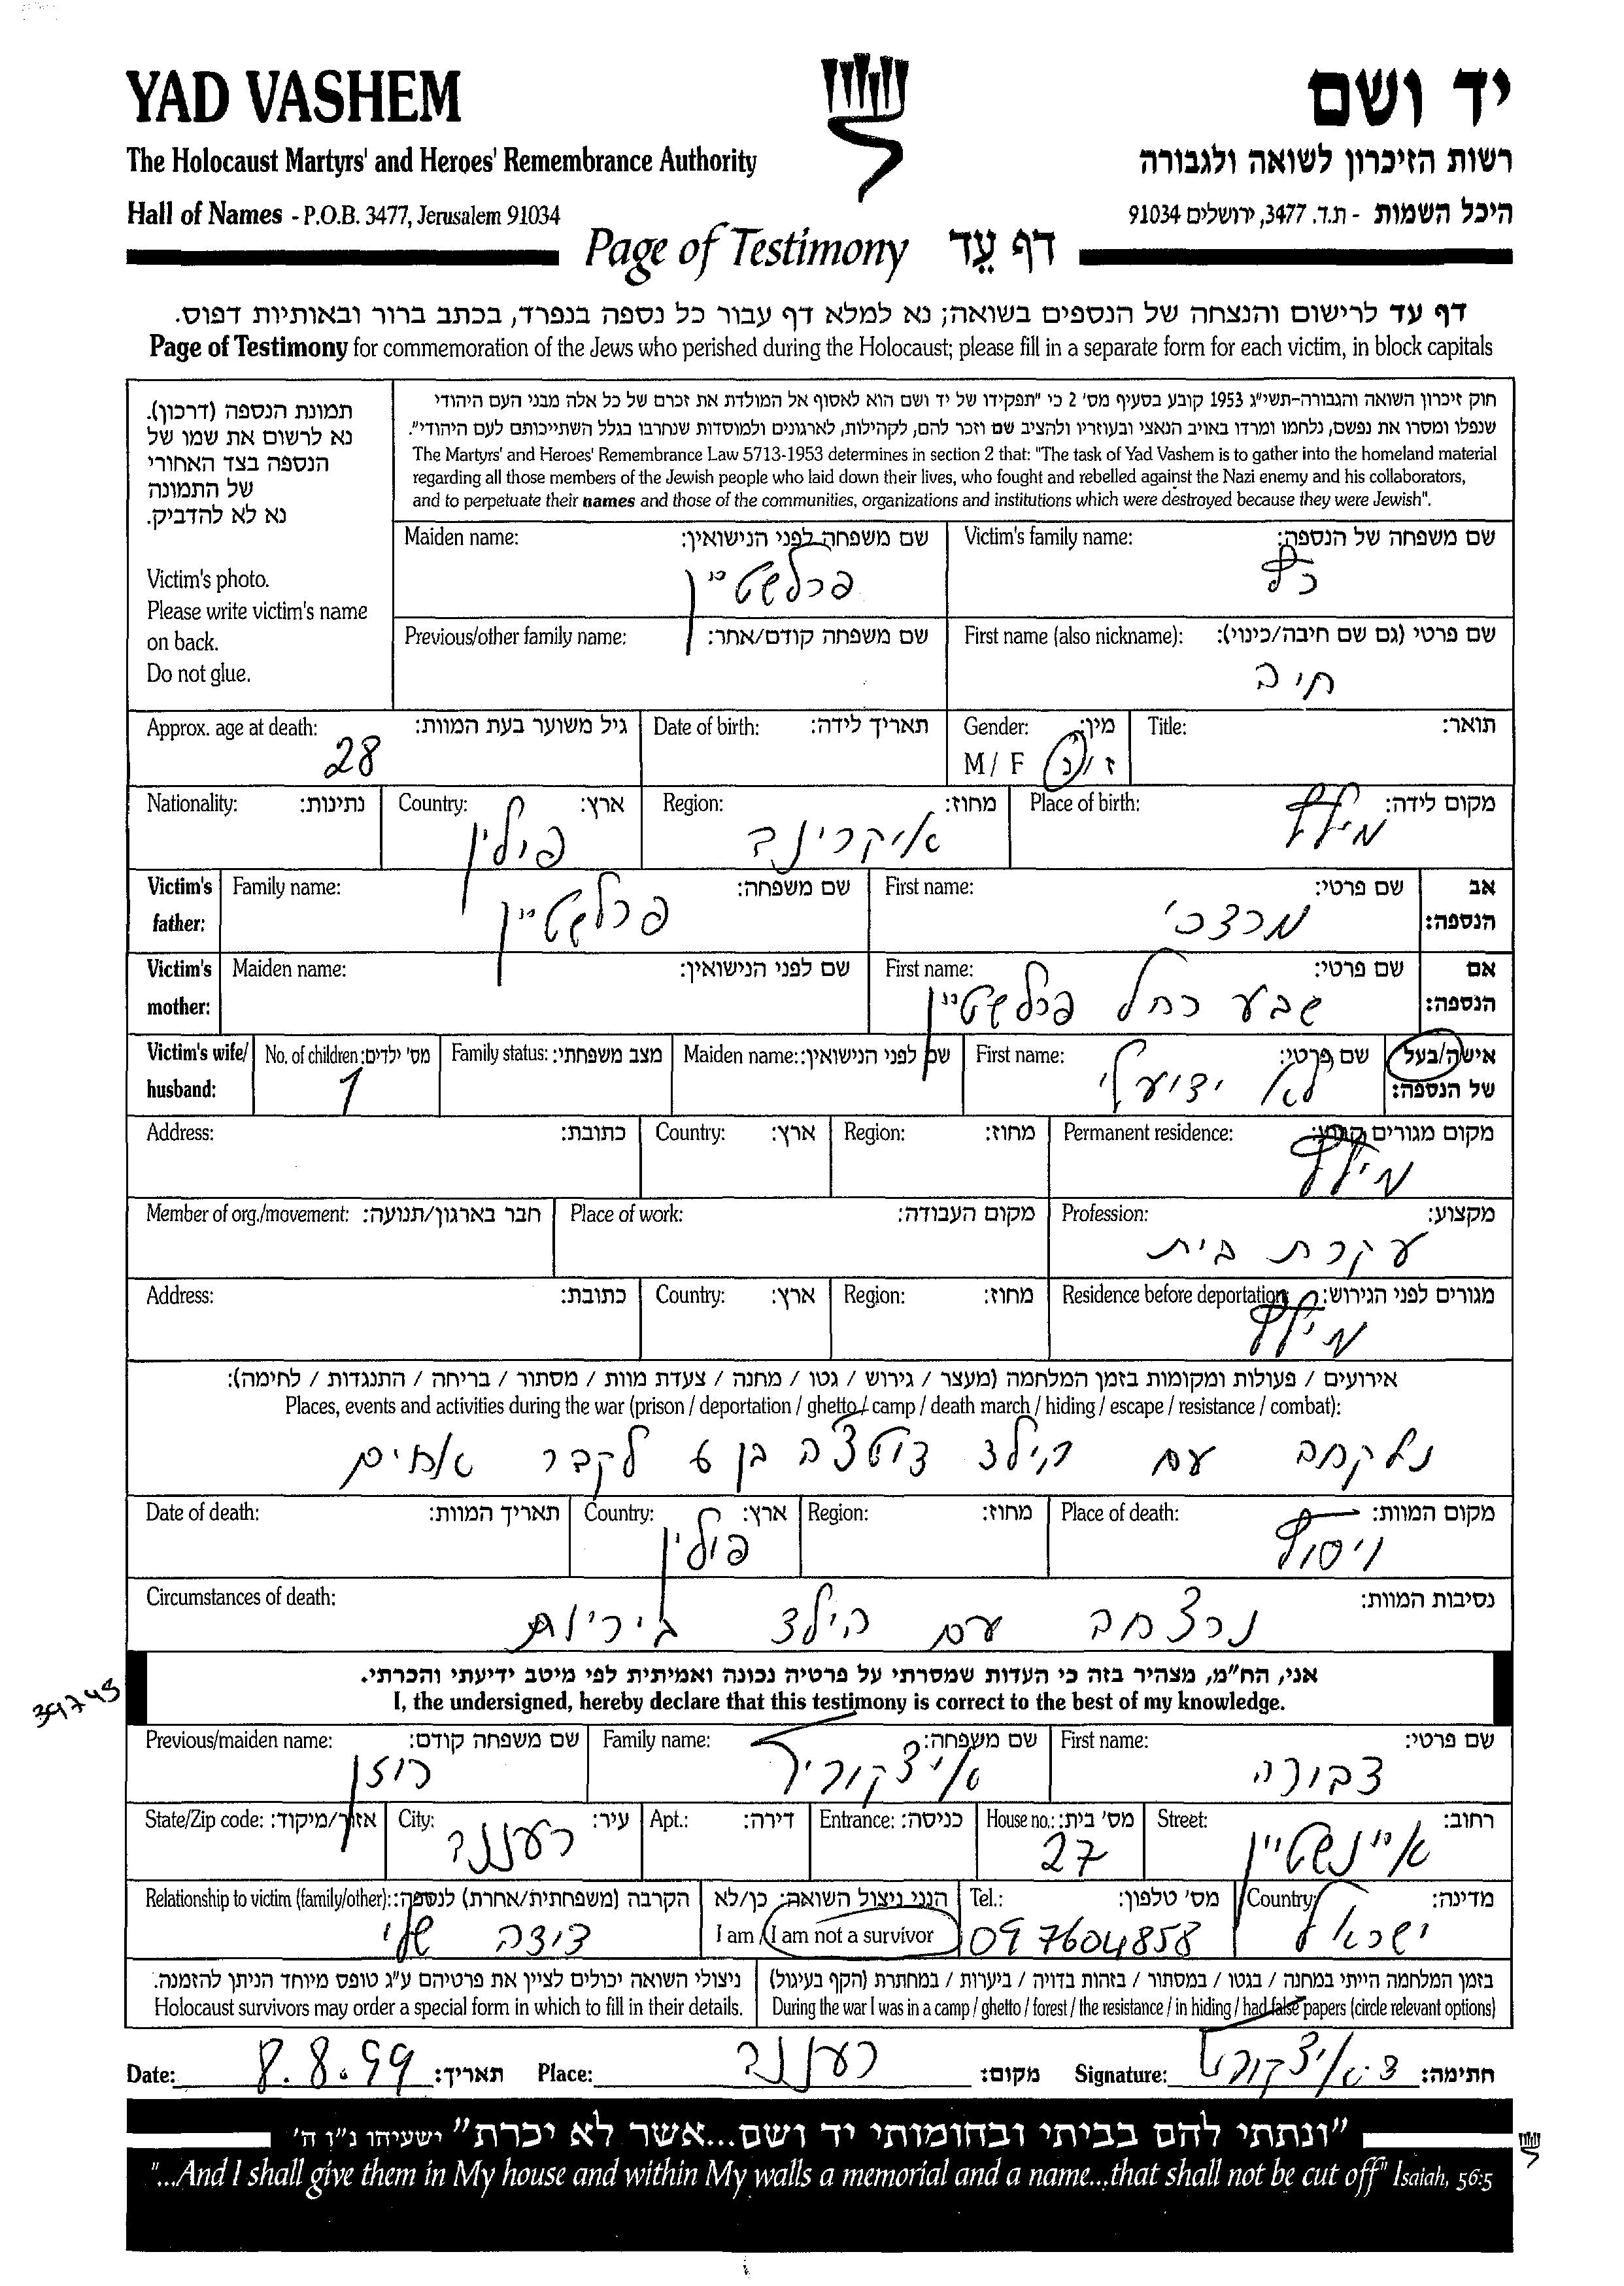 YAD VASHEM
יד ושם
The Holocaust Martyrs' and Heroes' Remembrance Authority
רשות הזיכרון לשואה ולגבורה
Hall of Names - P.O.B. 3477, Jerusalem 91034
היכל השמות - ת.ד. 3477, ירושלים 91034
Page of Testimony דף עֵד
דף עד לרישום והנצחה של הנספים בשואה; נא למלא דף עבור כל נספה בנפרד, בכתב ברור ובאותיות דפוס.
Page of Testimony for commemoration of the Jews who perished during the Holocaust; please fill in a separate form for each victim, in block capitals
תמונת הנספה (דרכון).
נא לרשום את שמו של
הנספה בצד האחורי
של התמונה
נא לא להדביק.
Victim's photo.
Please write victim's name
on back.
Do not glue.
חוק זיכרון השואה והגבורה-תשי"ג 1953 קובע בסעיף מס' 2 כי "תפקידו של יד ושם הוא לאסוף אל המולדת את זכרם של כל אלה מבני העם היהודי
שנפלו ומסרו את נפשם, נלחמו ומרדו באויב הנאצי ובעוזריו ולהציב שם וזכר להם, לקהילות, לארגונים ולמוסדות שנחרבו בגלל השתייכותם לעם היהודי".
The Martyrs' and Heroes' Remembrance Law 5713-1953 determines in section 2 that: "The task of Yad Vashem is to gather into the homeland material
regarding all those members of the Jewish people who laid down their lives, who fought and rebelled against the Nazi enemy and his collaborators,
and to perpetuate their names and those of the communities, organizations and institutions which were destroyed because they were Jewish".
Victim's family name: שם משפחה של הנספה:
Maiden name: שם משפחה לפני הנישואין:
פרלשטיין
First name (also nickname): שם פרטי (גם שם חיבה/כינוי):
חיה
Previous/other family name: שם משפחה קודם/אחר:
Title: תואר:
Gender: מין:
M / F ז / נ
Date of birth: תאריך לידה:
Approx. age at death: גיל משוער בעת המוות:
28
Place of birth: מקום לידה:
Region: מחוז:
Country: ארץ:
פולין
Nationality: נתינות:
Victim's father: אב הנספה:
First name: שם פרטי:
מרדכי
Family name: שם משפחה:
פרלשטיין
Victim's mother: אם הנספה:
First name: שם פרטי:
שבע רחל פרלשטיין
Maiden name: שם לפני הנישואין:
Victim's wife/ husband: אישה/בעל של הנספה:
First name: שם פרטי:
לא ידוע לי
Maiden name: שם לפני הנישואין:
Family status: מצב משפחתי:
No. of children: מס' ילדים:
1
Permanent residence: מקום מגורים קבוע:
Region: מחוז:
Country: ארץ:
Address: כתובת:
Profession: מקצוע:
עקרת בית
Place of work: מקום העבודה:
Member of org./movement: חבר בארגון/תנועה:
Residence before deportation: מגורים לפני הגירוש:
Region: מחוז:
Country: ארץ:
Address: כתובת:
אירועים / פעולות ומקומות בזמן המלחמה (מעצר / גירוש / גטו / מחנה / צעדת מוות / מסתור / בריחה / התנגדות / לחימה):
Places, events and activities during the war (prison / deportation / ghetto / camp / death march / hiding / escape / resistance / combat):
נלקחה עם הילד בן 6 לקבר אחים
Place of death: מקום המוות:
Region: מחוז:
Country: ארץ:
פולין
Date of death: תאריך המוות:
Circumstances of death: נסיבות המוות:
נרצחה עם הילד ביריות
אני, הח"מ, מצהיר בזה כי העדות שמסרתי על פרטיה נכונה ואמיתית לפי מיטב ידיעתי והכרתי.
I, the undersigned, hereby declare that this testimony is correct to the best of my knowledge.
39745
First name: שם פרטי:
דבורה
Family name: שם משפחה:
איצקוביץ
Previous/maiden name: שם משפחה קודם:
רוזן
Street: רחוב:
איינשטיין
House no.: מס' בית:
27
Entrance: כניסה:
Apt.: דירה:
City: עיר:
רעננה
State/Zip code: אזור/מיקוד:
Country: מדינה:
ישראל
Tel.: מס' טלפון:
09 7604858
הנני ניצול השואה: כן/לא
I am / I am not a survivor
Relationship to victim (family/other): הקרבה (משפחתית/אחרת) לנספה:
דודה שלי
בזמן המלחמה הייתי במחנה / בגטו / במסתור / בזהות בדויה / ביערות / במחתרת (הקף בעיגול)
During the war I was in a camp / ghetto / forest / the resistance / in hiding / had false papers (circle relevant options)
ניצולי השואה יכולים לציין את פרטיהם ע"ג טופס מיוחד הניתן להזמנה.
Holocaust survivors may order a special form in which to fill in their details.
Date: 8.8.99 תאריך: Place: רעננה מקום: Signature: ד. איצקוביץ חתימה:
"ונתתי להם בביתי ובחומותי יד ושם...אשר לא יכרת" ישעיהו נ"ו ה'
"...And I shall give them in My house and within My walls a memorial and a name...that shall not be cut off" Isaiah, 56:5